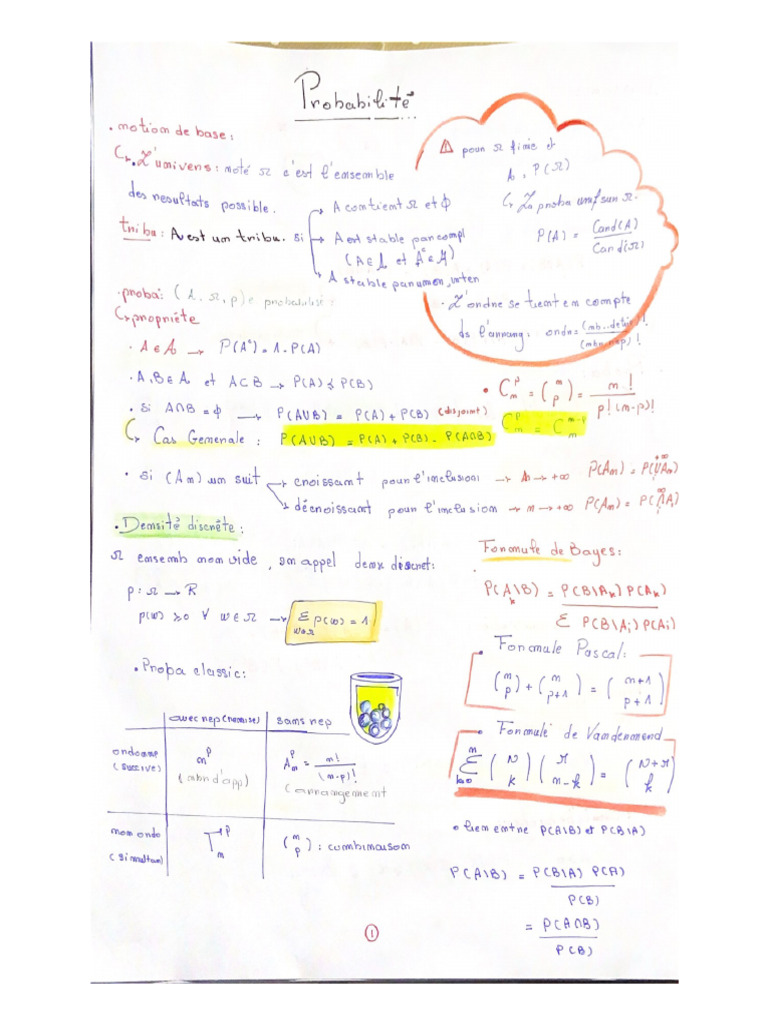 Probabilité
• notion de base :
↳ • L'univers : noté Ω c'est l'ensemble
des resultats possible.
tribu : A est un tribu. si
→ A contient Ω et ϕ
→ A est stable par compl
(A∈𝒜 et Aᶜ∈𝒜)
→ A stable par union, inter
⚠ pour Ω finie et
A, P(Ω)
↳ La proba unif sur Ω.
P(A) = Card(A) / Card(Ω)
• L'ordre se tient en compte
ds l'arrang :
• proba : (A, Ω, p) e probabilisé :
↳ propriéte
• A∈A → P(Aᶜ) = 1 - P(A)
• A, B∈A et A⊂B → P(A) ≤ P(B)
• si A∩B = ϕ → P(A∪B) = P(A) + P(B) (disjoint)
↳ Cas Generale : P(A∪B) = P(A) + P(B) - P(A∩B)
• C_n^p = (n p) = n! / p!(n-p)!
C_n^p = C_n^{n-p}
• si (An) un suit
→ croissant pour l'inclusion → n → +∞ P(An) = P(∪An)
→ décroissant pour l'inclusion → n → +∞ P(An) = P(∩A)
• Densité discrète :
Ω ensemb non vide, on appel dens discret:
p : Ω → R
p(w) ≥0 ∀ w∈Ω → Σ p(w) = 1
w∈Ω
Formule de Bayes :
P(A_k\B) = P(B\A_k) P(A_k) / Σ P(B\A_i) P(A_i)
• Formule Pascal :
(n p) + (n p+1) = (n+1 p+1)
• Formule de Vandermond
• Propa classic :
avec rep (remise) sans rep
ordonne (succive) n^p (nbr d'app) A_n^p = n! / (n-p)! (arrangement
non ordo (simultan) Γ_n^p (n p) : combinaison
• lien entre P(A\B) et P(B\A)
P(A\B) = P(B\A) P(A) / P(B)
= P(A∩B) / P(B)
1